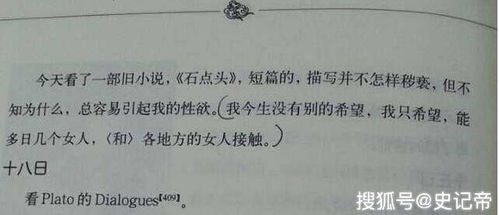 今天看了一部旧小说，《石点头》，短篇的，描写并不怎样秽亵，但不
知为什么，总容易引起我的性欲。（我今生没有别的希望，我只希望，能
多日几个女人，〈和〉各地方的女人接触。）
十八日
看Plato的Dialogues【409】。
搜狐号@史记帝